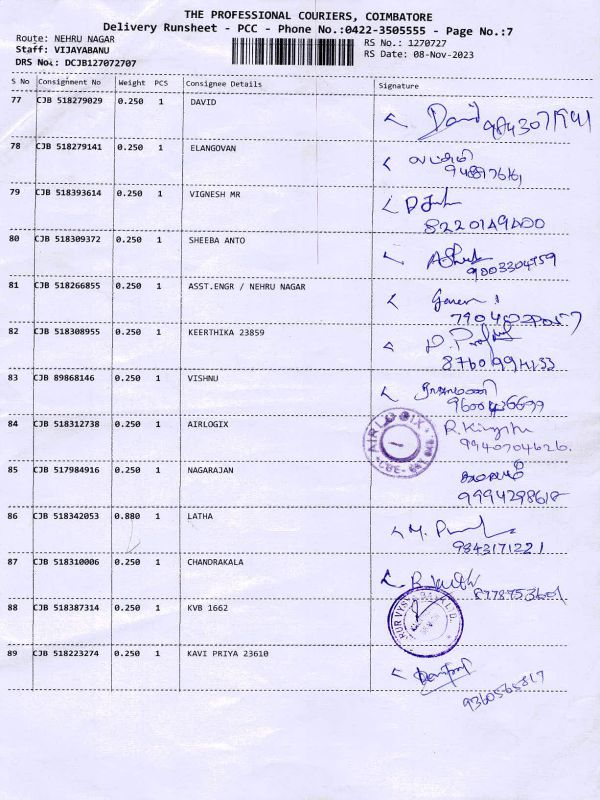 THE PROFESSIONAL COURIERS, COIMBATORE
Delivery Runsheet - PCC - Phone No.:0422-3505555 - Page No.:7
Route: NEHRU NAGAR
RS No.: 1270727
Staff: VIJAYABANU
RS Date: 08-Nov-2023
DRS No.: DCJB127072707
S No Consignment No Weight PCS Consignee Details Signature
77 CJB 518279029 0.250 1 DAVID David 9843071941
78 CJB 518279141 0.250 1 ELANGOVAN
79 CJB 518393614 0.250 1 VIGNESH MR 8220149400
80 CJB 518309372 0.250 1 SHEEBA ANTO 9003304759
81 CJB 518266855 0.250 1 ASST.ENGR / NEHRU NAGAR
82 CJB 518308955 0.250 1 KEERTHIKA 23859
83 CJB 89868146 0.250 1 VISHNU
84 CJB 518312738 0.250 1 AIRLOGIX AIRLOGIX 9940704626.
85 CJB 517984916 0.250 1 NAGARAJAN 9994298618
86 CJB 518342053 0.880 1 LATHA 9843171221
87 CJB 518310006 0.250 1 CHANDRAKALA
88 CJB 518387314 0.250 1 KVB 1662
89 CJB 518223274 0.250 1 KAVI PRIYA 23610 9360565817